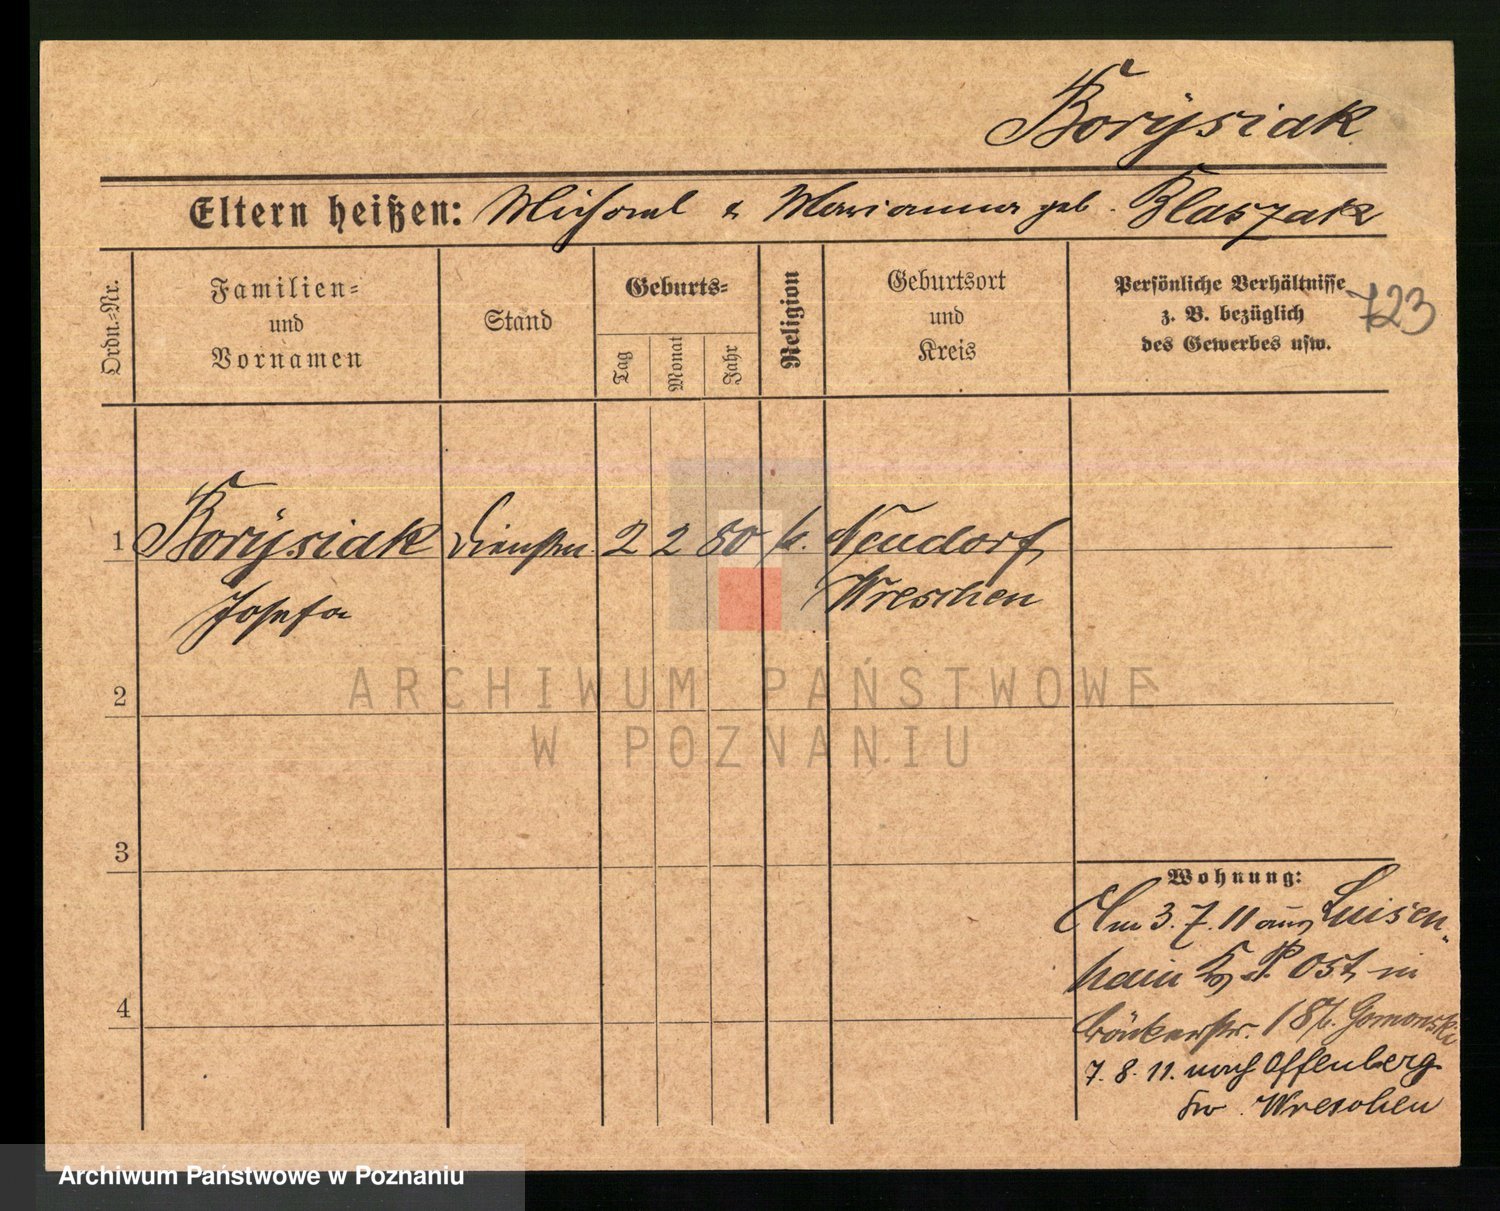 Borÿsiak
Eltern heißen: Michael & Marianna geb. Blaszak
Ordn.=Nr.
Familien=
und
Vornamen
Stand
Geburts=
Tag
Monat
Jahr
Religion
Geburtsort
und
Kreis
Persönliche Verhältnisse
z. B. bezüglich
des Gewerbes usw.
723
1 Borÿsiak Dienstm. 2 2 80 k. Neudorf
Josefa Wreschen
2
3
4
Wohnung:
Am 3.7.11 aus Luisen-
hain Kr. P. Ost, in
Bäckerstr. 18/b.
7.8.11. nach Offenberg
Kr. Wreschen
ARCHIWUM PAŃSTWOWE
W POZNANIU
Archiwum Państwowe w Poznaniu